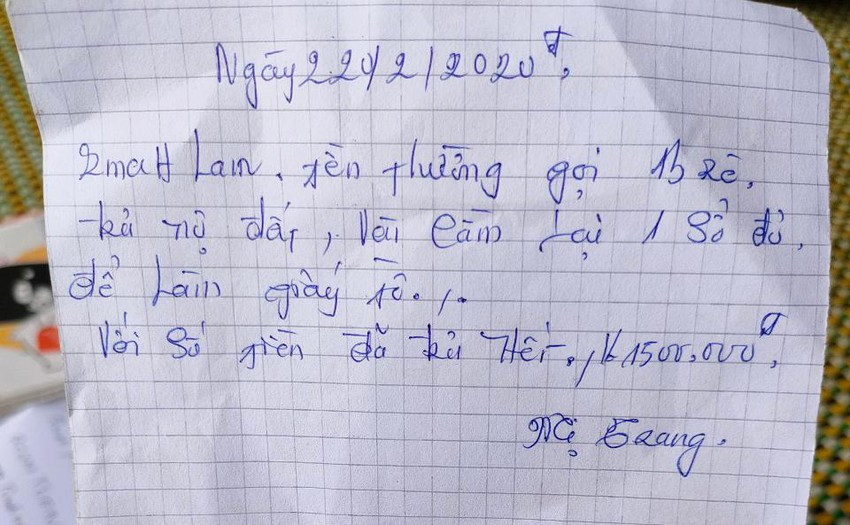 Ngày 22/2/2020đ,
YmaH Lan. tên thường gọi
tả nợ đất, Vài Cầm Lại 1 Sổ đỏ,
để Làm giấy tờ.,.
Với Số tiền đã tả Hết., 1500.000đ,
Mẹ Trang.